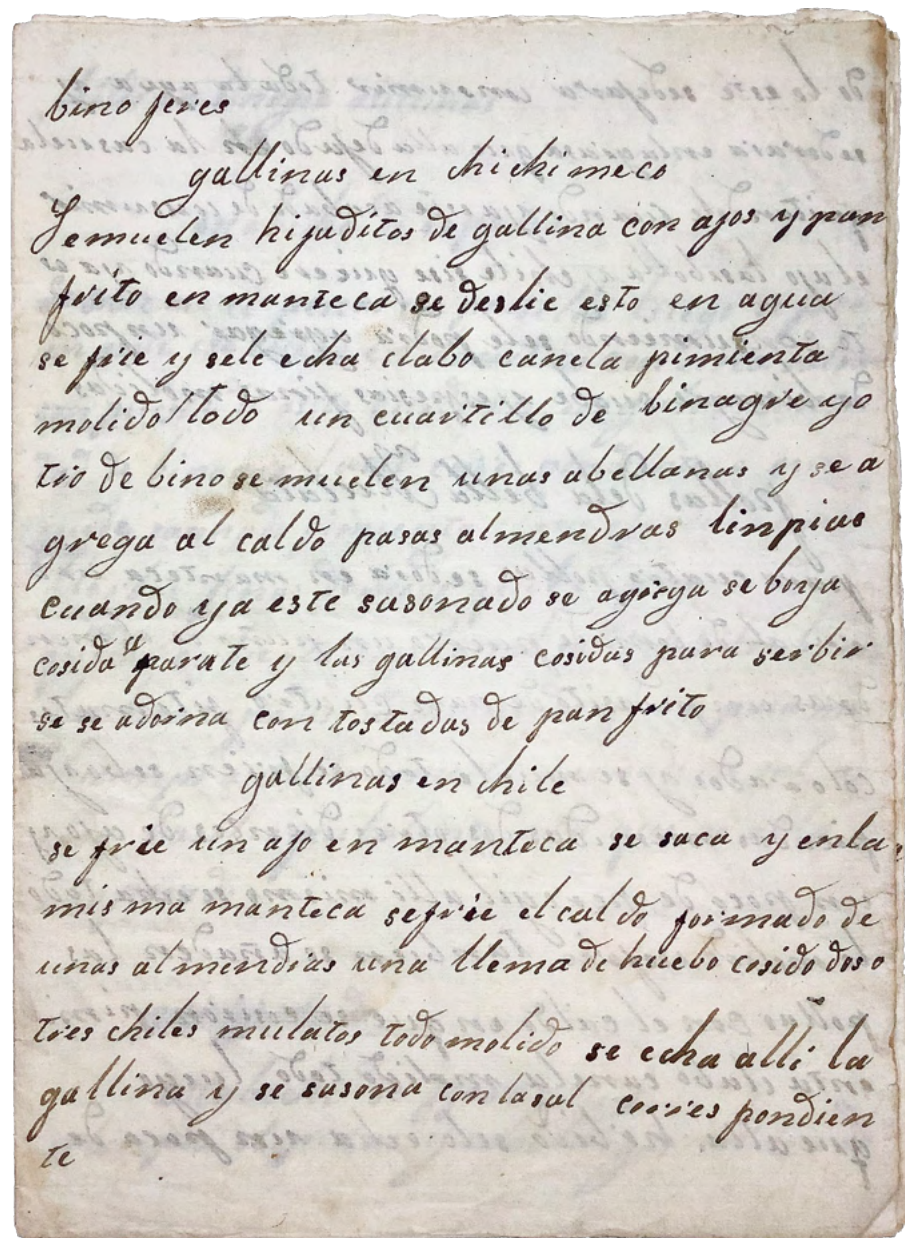 bino jeres
gallinas en chichimeco
Semuelen higaditos de gallina con ajos y pan
frito en manteca se deslie esto en agua
se frie y sele echa clabo canela pimienta
molido todo un cuartillo de binagre yo
tro de bino se muelen unas abellanas y se a
grega al caldo pasas almendras linpias
cuando ya este sasonado se agrega se boya
cosida aparate y las gallinas cosidas para serbir
se se adorna con tostadas de pan frito
gallinas en chile
se frie un ajo en manteca se saca y enla
mis ma manteca sefrie el caldo formado de
unas almendras una llema de huebo cosido dos o
tres chiles mulatos todo molido se echa alli la
gallina y se sasona con lasal corres pondien
te